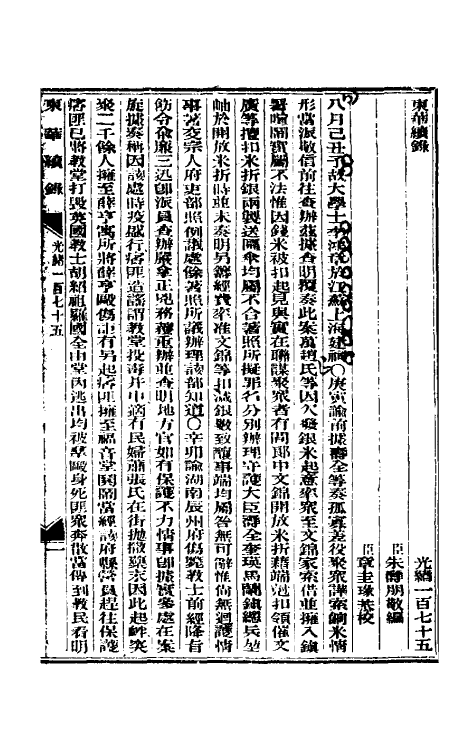 東華續錄
光緒一百七十五
臣朱壽朋敬編
臣章圭瑑恭校
八月己丑予故大學士李鴻章於江蘇上海建祠〇庚寅諭前據壽全等奏孤寡差役聚眾譁索餉米情
形當派敬信前往查辦茲據查明覆奏此案寡趙氏等因欠發銀米起意率眾至文錦家索借並擁入鎮
署喧鬧實屬不法惟因錢米被扣起見與實在聯謀聚眾者有間郎中文錦開放米折藉端剋扣領催文
廣等擅扣米折銀兩製送匾傘均屬不合著照所擬罪名分別辦理守護大臣壽全奎瑛馬蘭鎮總兵堃
岫於開放米折時並未奏明另籌經費率准文錦等扣減銀數致釀事端均屬咎無可辭惟尚無迴護情
事著交宗人府吏部照例議處餘著照所議辦理該部知道〇辛卯諭湖南辰州府傷斃教士前經降旨
飭令俞廉三迅即派員查辦嚴拿正兇務穫重辦並查明地方官如有保護不力情事即據實參處在案
旋據奏稱因該處時疫盛行痞匪造謠謂教堂投毒井中適有民婦蕭張氏在街拋撒藥末因此起衅突
聚二千餘人擁至薛亨寓所將薛亨毆傷詎有另起痞匪擁至福音堂鬨鬧當經該府縣營員趕往保護
痞匪已將教堂打毀英國教士胡紹祖羅國全由堂內逃出均被羣毆身死匪眾奔散當傳到教民看明
東華續錄
光緒一百七十五
一